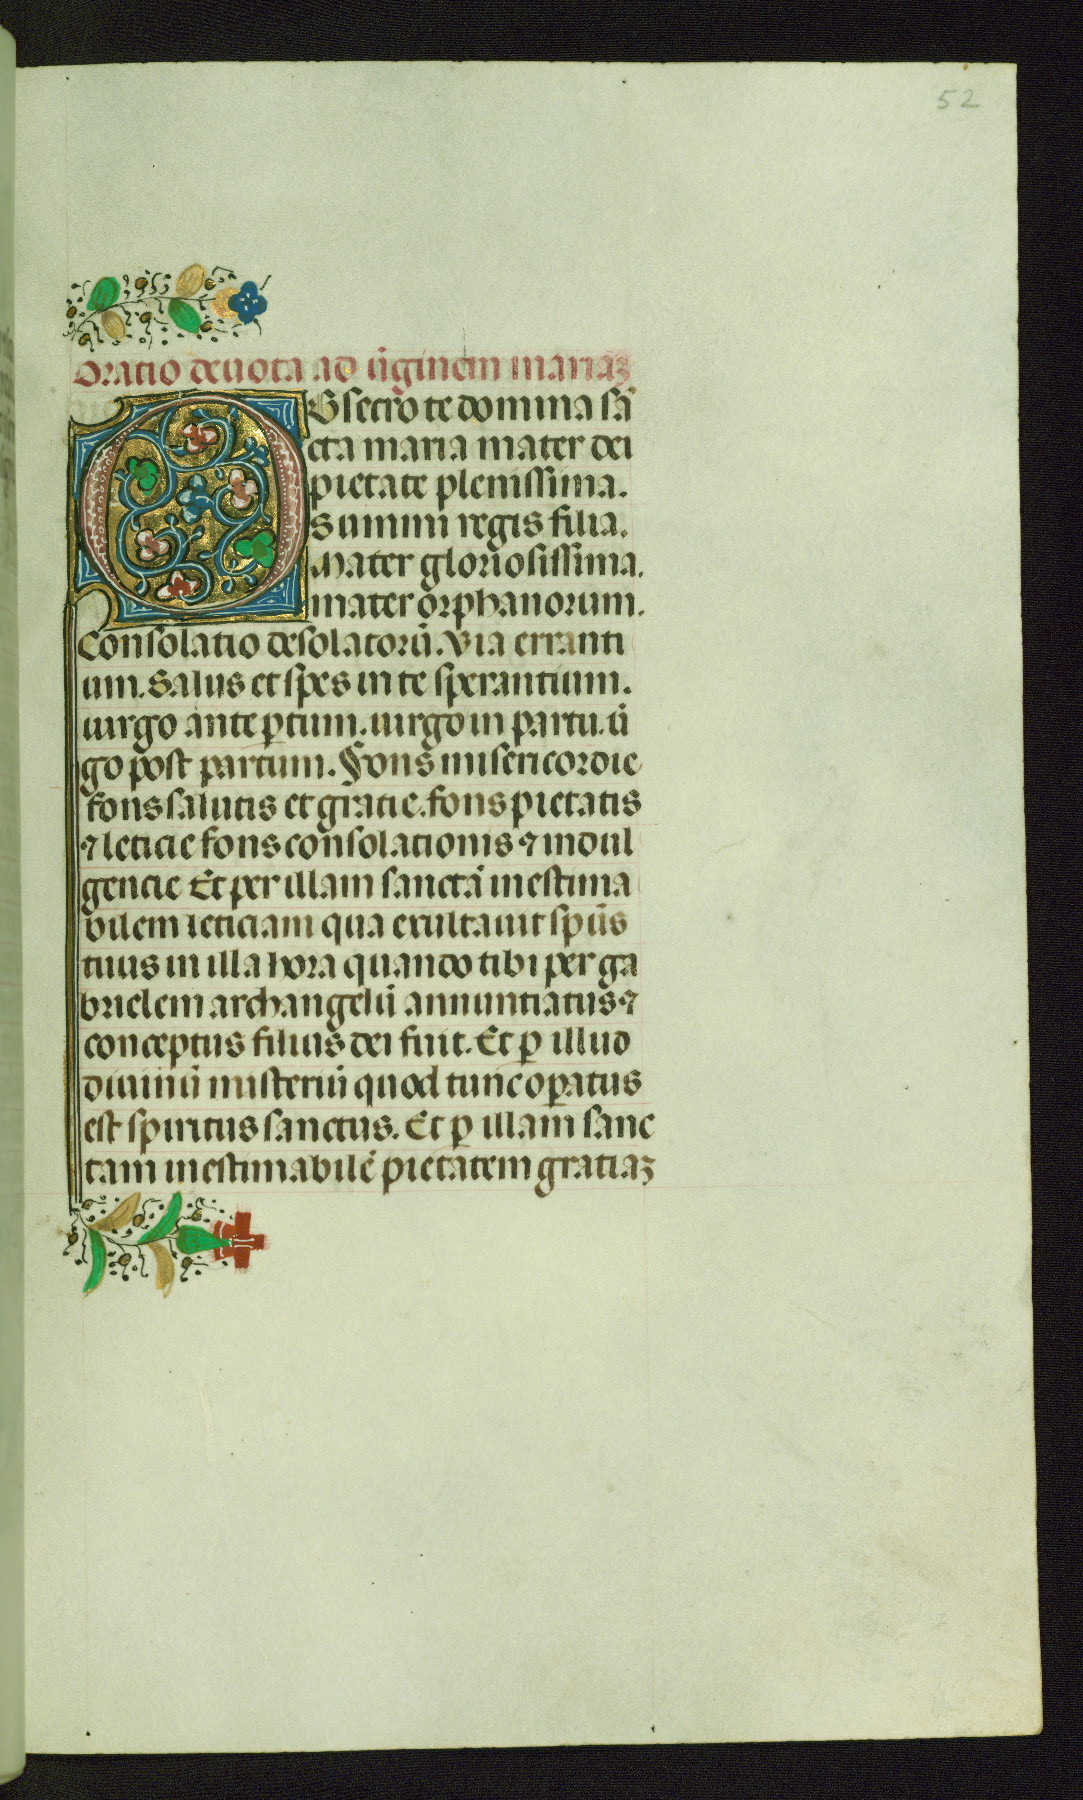 52
Oratio deuota ad ũginem mariaꝫ
OBsecro te domina sã
cta maria mater dei
pietate plenissima.
Summi regis filia.
Mater gloriosissima.
mater orphanorum.
Consolatio desolatorũ. Via erranti
um. Salus et spes in te sperantium.
uirgo ante ꝑtum. uirgo in partu. ũ
go post partum. Fons misericordie
fons salutis et gratie. fons pietatis
⁊ leticie fons consolationis ⁊ indul
gencie Et per illam sanctã inestima
bilem leticiam qua exultauit spũs
tuus in illa hora quando tibi per ga
brielem archangelũ annuntiatus ⁊
conceptus filius dei fuit. Et ꝑ illud
diuinũ misteriũ quod tunc oꝑatus
est spiritus sanctus. Et ꝑ illam sanc
tam inestimabilẽ pietatem gratiaꝫ